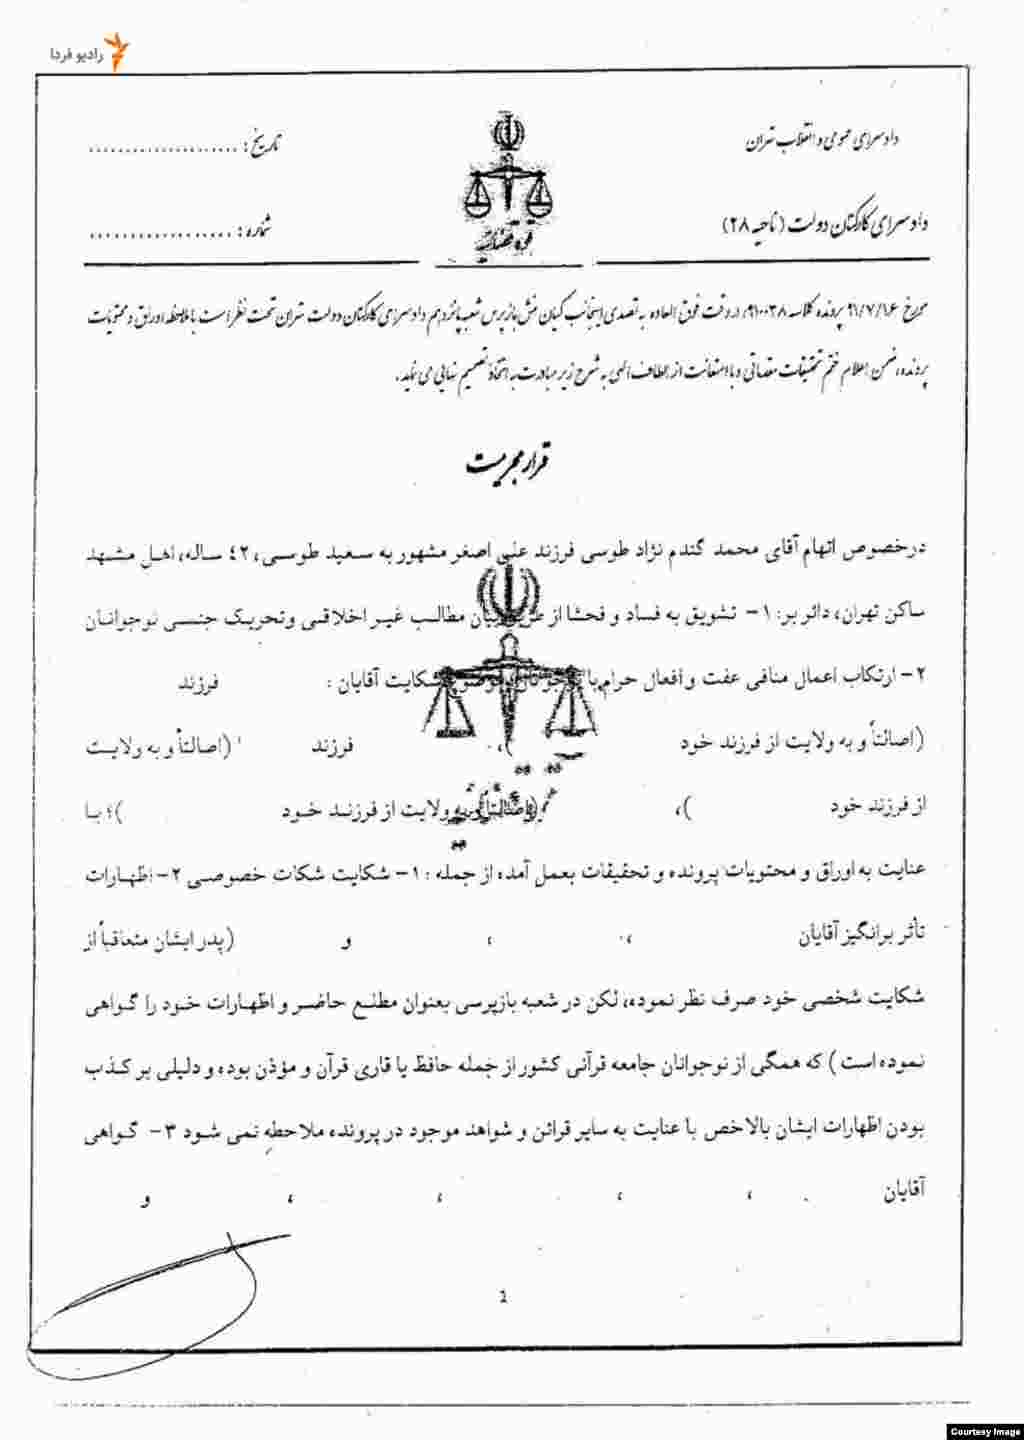 رادیو فردا
دادسرای عمومی و انقلاب تهران
تاریخ : ......................
قوه قضائیه
دادسرای کارکنان دولت (ناحیه ۲۸)
شماره : ...................
مورخ ۹۱/۷/۱۶ پرونده کلاسه در وقت فوق العاده به تصدی اینجانب کیان منش بازپرس شعبه پانزدهم دادسرای کارکنان دولت تهران تحت نظر است با ملاحظه اوراق و محتویات
پرونده، ضمن اعلام ختم تحقیقات مقدماتی و با استعانت از الطاف الهی به شرح زیر مبادرت به اتخاذ تصمیم نهایی می نماید.
قرار مجرمیت
درخصوص اتهام آقای محمد گندم نژاد طوسی فرزند علی اصغر مشهور به سعید طوسی، ۴۲ ساله، اهل مشهد
ساکن تهران، دائر بر: ۱- تشویق به فساد و فحشا از طریق بیان مطالب غیر اخلاقی و تحریک جنسی نوجوانان
۲- ارتکاب اعمال منافی عفت و افعال حرام با نوجوانان موضوع شکایت آقایان : فرزند
(اصالتاً و به ولایت از فرزند خود )، فرزند (اصالتاً و به ولایت
از فرزند خود )، (اصالتاً و به ولایت از فرزند خود )؛ با
عنایت به اوراق و محتویات پرونده و تحقیقات بعمل آمده از جمله : ۱- شکایت شکات خصوصی ۲- اظهارات
تأثر برانگیز آقایان ، ، و (پدر ایشان متعاقباً از
شکایت شخصی خود صرف نظر نموده، لکن در شعبه بازپرسی بعنوان مطلع حاضر و اظهارات خود را گواهی
نموده است) که همگی از نوجوانان جامعه قرآنی کشور از جمله حافظ یا قاری قرآن و مؤذن بوده و دلیلی بر کذب
بودن اظهارات ایشان بالاخص با عنایت به سایر قرائن و شواهد موجود در پرونده ملاحظه نمی شود ۳- گواهی
آقایان ، ، ، ، و
1
Courtesy Image